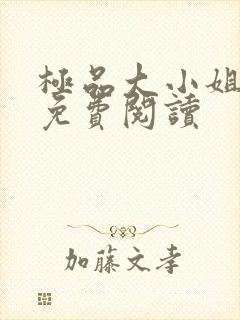 極品大小姐
免費閱讀
加藤文孝